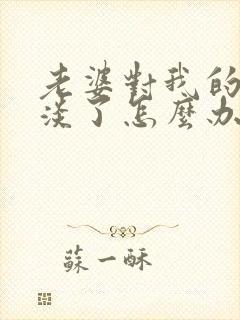 老婆對我的
淡了怎麼办
蘇一酥